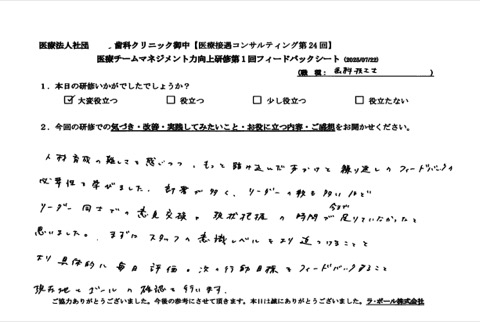 医療法人社団　　．歯科クリニック御中【医療接遇コンサルティング第24回】
医療チームマネジメント力向上研修第1回フィードバックシート（2025/07/22）
（職 種： 歯科技工士 ）
1．本日の研修いかがでしたでしょうか？
☑ 大変役立つ　□ 役立つ　□ 少し役立つ　□ 役立たない
2．今回の研修での気づき・改善・実践してみたいこと・お役に立つ内容・ご感想をお聞かせください。
人材育成の難しさを感じつつ、もっと踏み込んだ声かけと繰り返しのフィードバックの
必要性を学びました。部署が多く、リーダーの数も多いほど
リーダー同士での意見交換や現状把握の時間が今まで足りていなかったと
思いました。まずはスタッフの意識レベルをより近づけることと
より具体的に毎日評価。次の行動目標をフィードバックすること
現在地とゴールの確認を行います。
ご協力ありがとうございました。今後の参考にさせて頂きます。本日は誠にありがとうございました。ラ・ポール株式会社